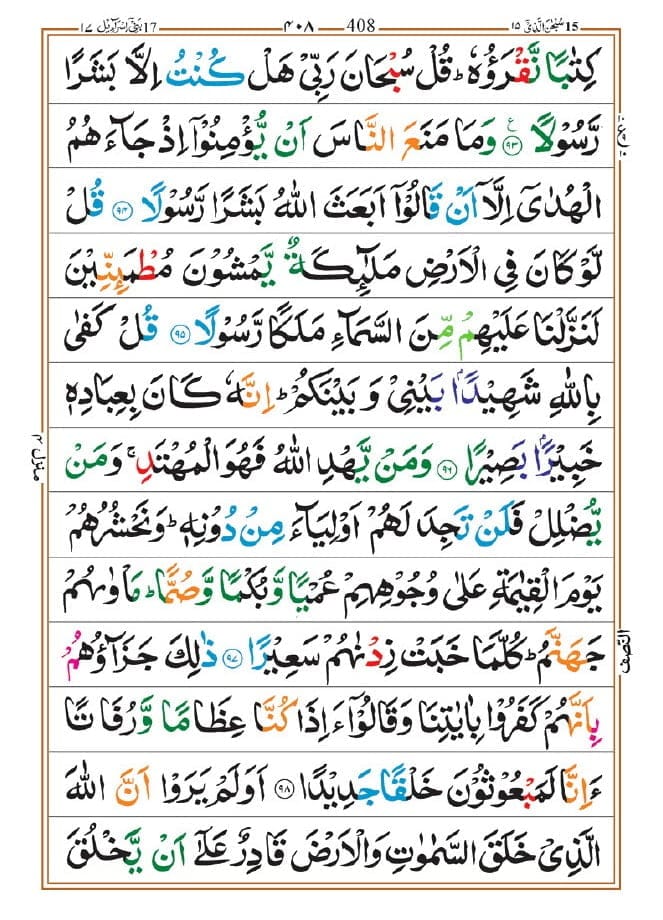 17 بنی اسرآءیل ۱۷ ۴۰۸ 408 15 سُبْحٰنَ الَّذِیْۤ ۱۵
كِتٰبًا نَّقْرَؤُهٗ ؕ قُلْ سُبْحَانَ رَبِّیْ هَلْ كُنْتُ اِلَّا بَشَرًا
رَّسُوْلًا ۟ ع ﴿۹۳﴾ وَمَا مَنَعَ النَّاسَ اَنْ یُّؤْمِنُوْۤا اِذْ جَآءَهُمُ
الْهُدٰۤی اِلَّاۤ اَنْ قَالُوْۤا اَبَعَثَ اللّٰهُ بَشَرًا رَّسُوْلًا ﴿۹۴﴾ قُلْ
لَّوْ كَانَ فِی الْاَرْضِ مَلٰٓىِٕكَةٌ یَّمْشُوْنَ مُطْمَىِٕنِّیْنَ
لَنَزَّلْنَا عَلَیْهِمْ مِّنَ السَّمَآءِ مَلَكًا رَّسُوْلًا ﴿۹۵﴾ قُلْ كَفٰی
بِاللّٰهِ شَهِیْدًۢا بَیْنِیْ وَ بَیْنَكُمْ ؕ اِنَّهٗ كَانَ بِعِبَادِهٖ
خَبِیْرًۢا بَصِیْرًا ﴿۹۶﴾ وَمَنْ یَّهْدِ اللّٰهُ فَهُوَ الْمُهْتَدِ ۚ وَمَنْ
یُّضْلِلْ فَلَنْ تَجِدَ لَهُمْ اَوْلِیَآءَ مِنْ دُوْنِهٖ ؕ وَنَحْشُرُهُمْ
یَوْمَ الْقِیٰمَةِ عَلٰی وُجُوْهِهِمْ عُمْیًا وَّبُكْمًا وَّصُمًّا ؕ مَاْوٰىهُمْ
جَهَنَّمُ ؕ كُلَّمَا خَبَتْ زِدْنٰهُمْ سَعِیْرًا ﴿۹۷﴾ ذٰلِكَ جَزَآؤُهُمْ
بِاَنَّهُمْ كَفَرُوْا بِاٰیٰتِنَا وَقَالُوْۤا ءَاِذَا كُنَّا عِظَامًا وَّرُفَاتًا
ءَاِنَّا لَمَبْعُوْثُوْنَ خَلْقًا جَدِیْدًا ﴿۹۸﴾ اَوَلَمْ یَرَوْا اَنَّ اللّٰهَ
الَّذِیْ خَلَقَ السَّمٰوٰتِ وَالْاَرْضَ قَادِرٌ عَلٰۤی اَنْ یَّخْلُقَ
منزل ۴
النصف